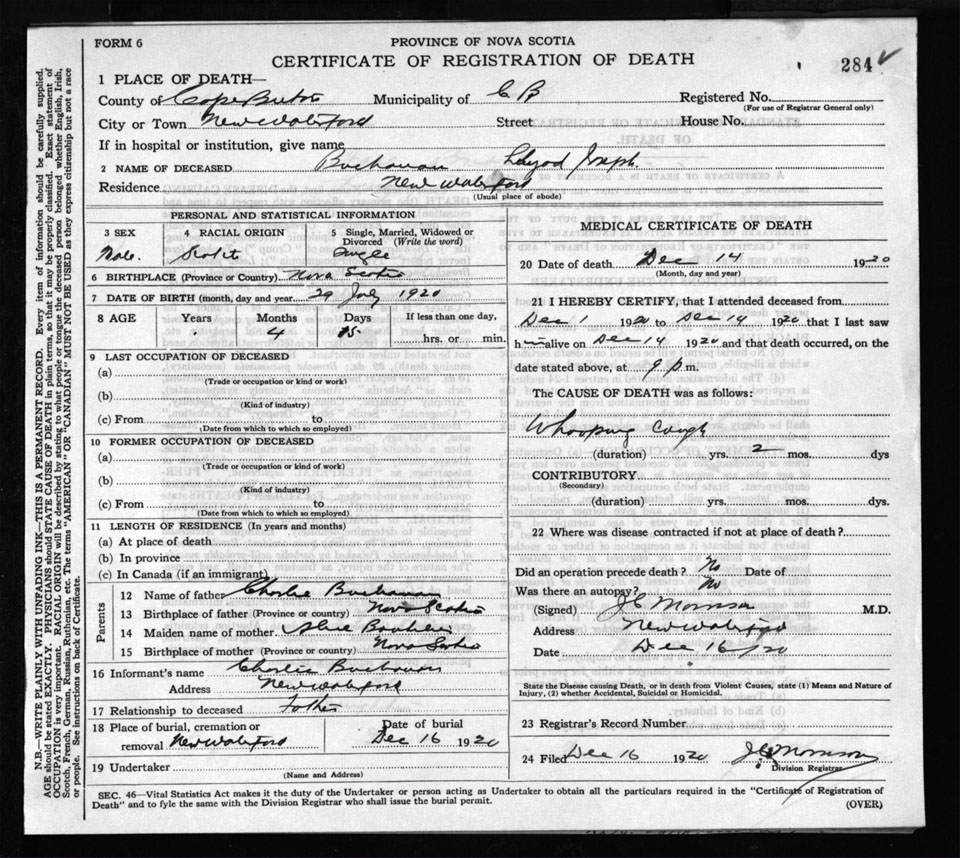 FORM 6
PROVINCE OF NOVA SCOTIA
CERTIFICATE OF REGISTRATION OF DEATH
284
1 PLACE OF DEATH—
County of Cape Breton Municipality of C B Registered No.
(For use of Registrar General only)
City or Town New Waterford Street House No.
If in hospital or institution, give name
2 NAME OF DECEASED Buchanan Joseph
Residence New Waterford
(Usual place of abode)
PERSONAL AND STATISTICAL INFORMATION
3 SEX 4 RACIAL ORIGIN 5 Single, Married, Widowed or Divorced (Write the word)
Male Single
6 BIRTHPLACE (Province or Country) Nova Scotia
7 DATE OF BIRTH (month, day and year) 29 July 1920
8 AGE Years Months Days If less than one day,
4 15 hrs. or min.
9 LAST OCCUPATION OF DECEASED
(a)
(Trade or occupation or kind or work)
(b)
(Kind of industry)
(c) From to
(Date from which to which so employed)
10 FORMER OCCUPATION OF DECEASED
(a)
(Trade or occupation or kind of work)
(b)
(Kind of industry)
(c) From to
(Date from which to which so employed)
11 LENGTH OF RESIDENCE (In years and months)
(a) At place of death
(b) In province
(c) In Canada (if an immigrant)
Parents
12 Name of father Charlie Buchanan
13 Birthplace of father (Province or country) Nova Scotia
14 Maiden name of mother
15 Birthplace of mother (Province or country) Nova Scotia
16 Informant's name Charlie Buchanan
Address New Waterford
17 Relationship to deceased Father
18 Place of burial, cremation or removal New Waterford
Date of burial
Dec 16 1920
19 Undertaker
(Name and Address)
MEDICAL CERTIFICATE OF DEATH
20 Date of death Dec 14 1920
(Month, day and year)
21 I HEREBY CERTIFY, that I attended deceased from
Dec 1 1920 to Dec 14 1920 that I last saw
him alive on Dec 14 1920 and that death occurred, on the
date stated above, at 9 p.m.
The CAUSE OF DEATH was as follows:
Whooping Cough
(duration) yrs. 2 mos. dys
CONTRIBUTORY
(Secondary)
(duration) yrs. mos. dys.
22 Where was disease contracted if not at place of death?
Did an operation precede death? No Date of
Was there an autopsy? No
(Signed) M.D.
Address New Waterford
Date Dec 16/20
State the Disease causing Death, or in death from Violent Causes, state (1) Means and Nature of
Injury, (2) whether Accidental, Suicidal or Homicidal.
23 Registrar's Record Number
24 Filed Dec 16 1920
Division Registrar
SEC. 46—Vital Statistics Act makes it the duty of the Undertaker or person acting as Undertaker to obtain all the particulars required in the "Certificate of Registration of
Death" and to fyle the same with the Division Registrar who shall issue the burial permit.
(OVER)
N.B.—WRITE PLAINLY WITH UNFADING INK—THIS IS A PERMANENT RECORD. Every item of information should be carefully supplied.
AGE should be stated EXACTLY. PHYSICIANS should STATE CAUSE OF DEATH in plain terms, so that it may be properly classified. Exact statement of
OCCUPATION is very important. RACIAL ORIGIN will be described by stating to what people or tongue the deceased person belonged, whether English, Irish,
Scotch, French, German, Russian, Ruthenian, etc. The terms "AMERICAN" OR "CANADIAN" MUST NOT BE USED as they express citizenship but not a race
or people. See instructions on back of Certificate.